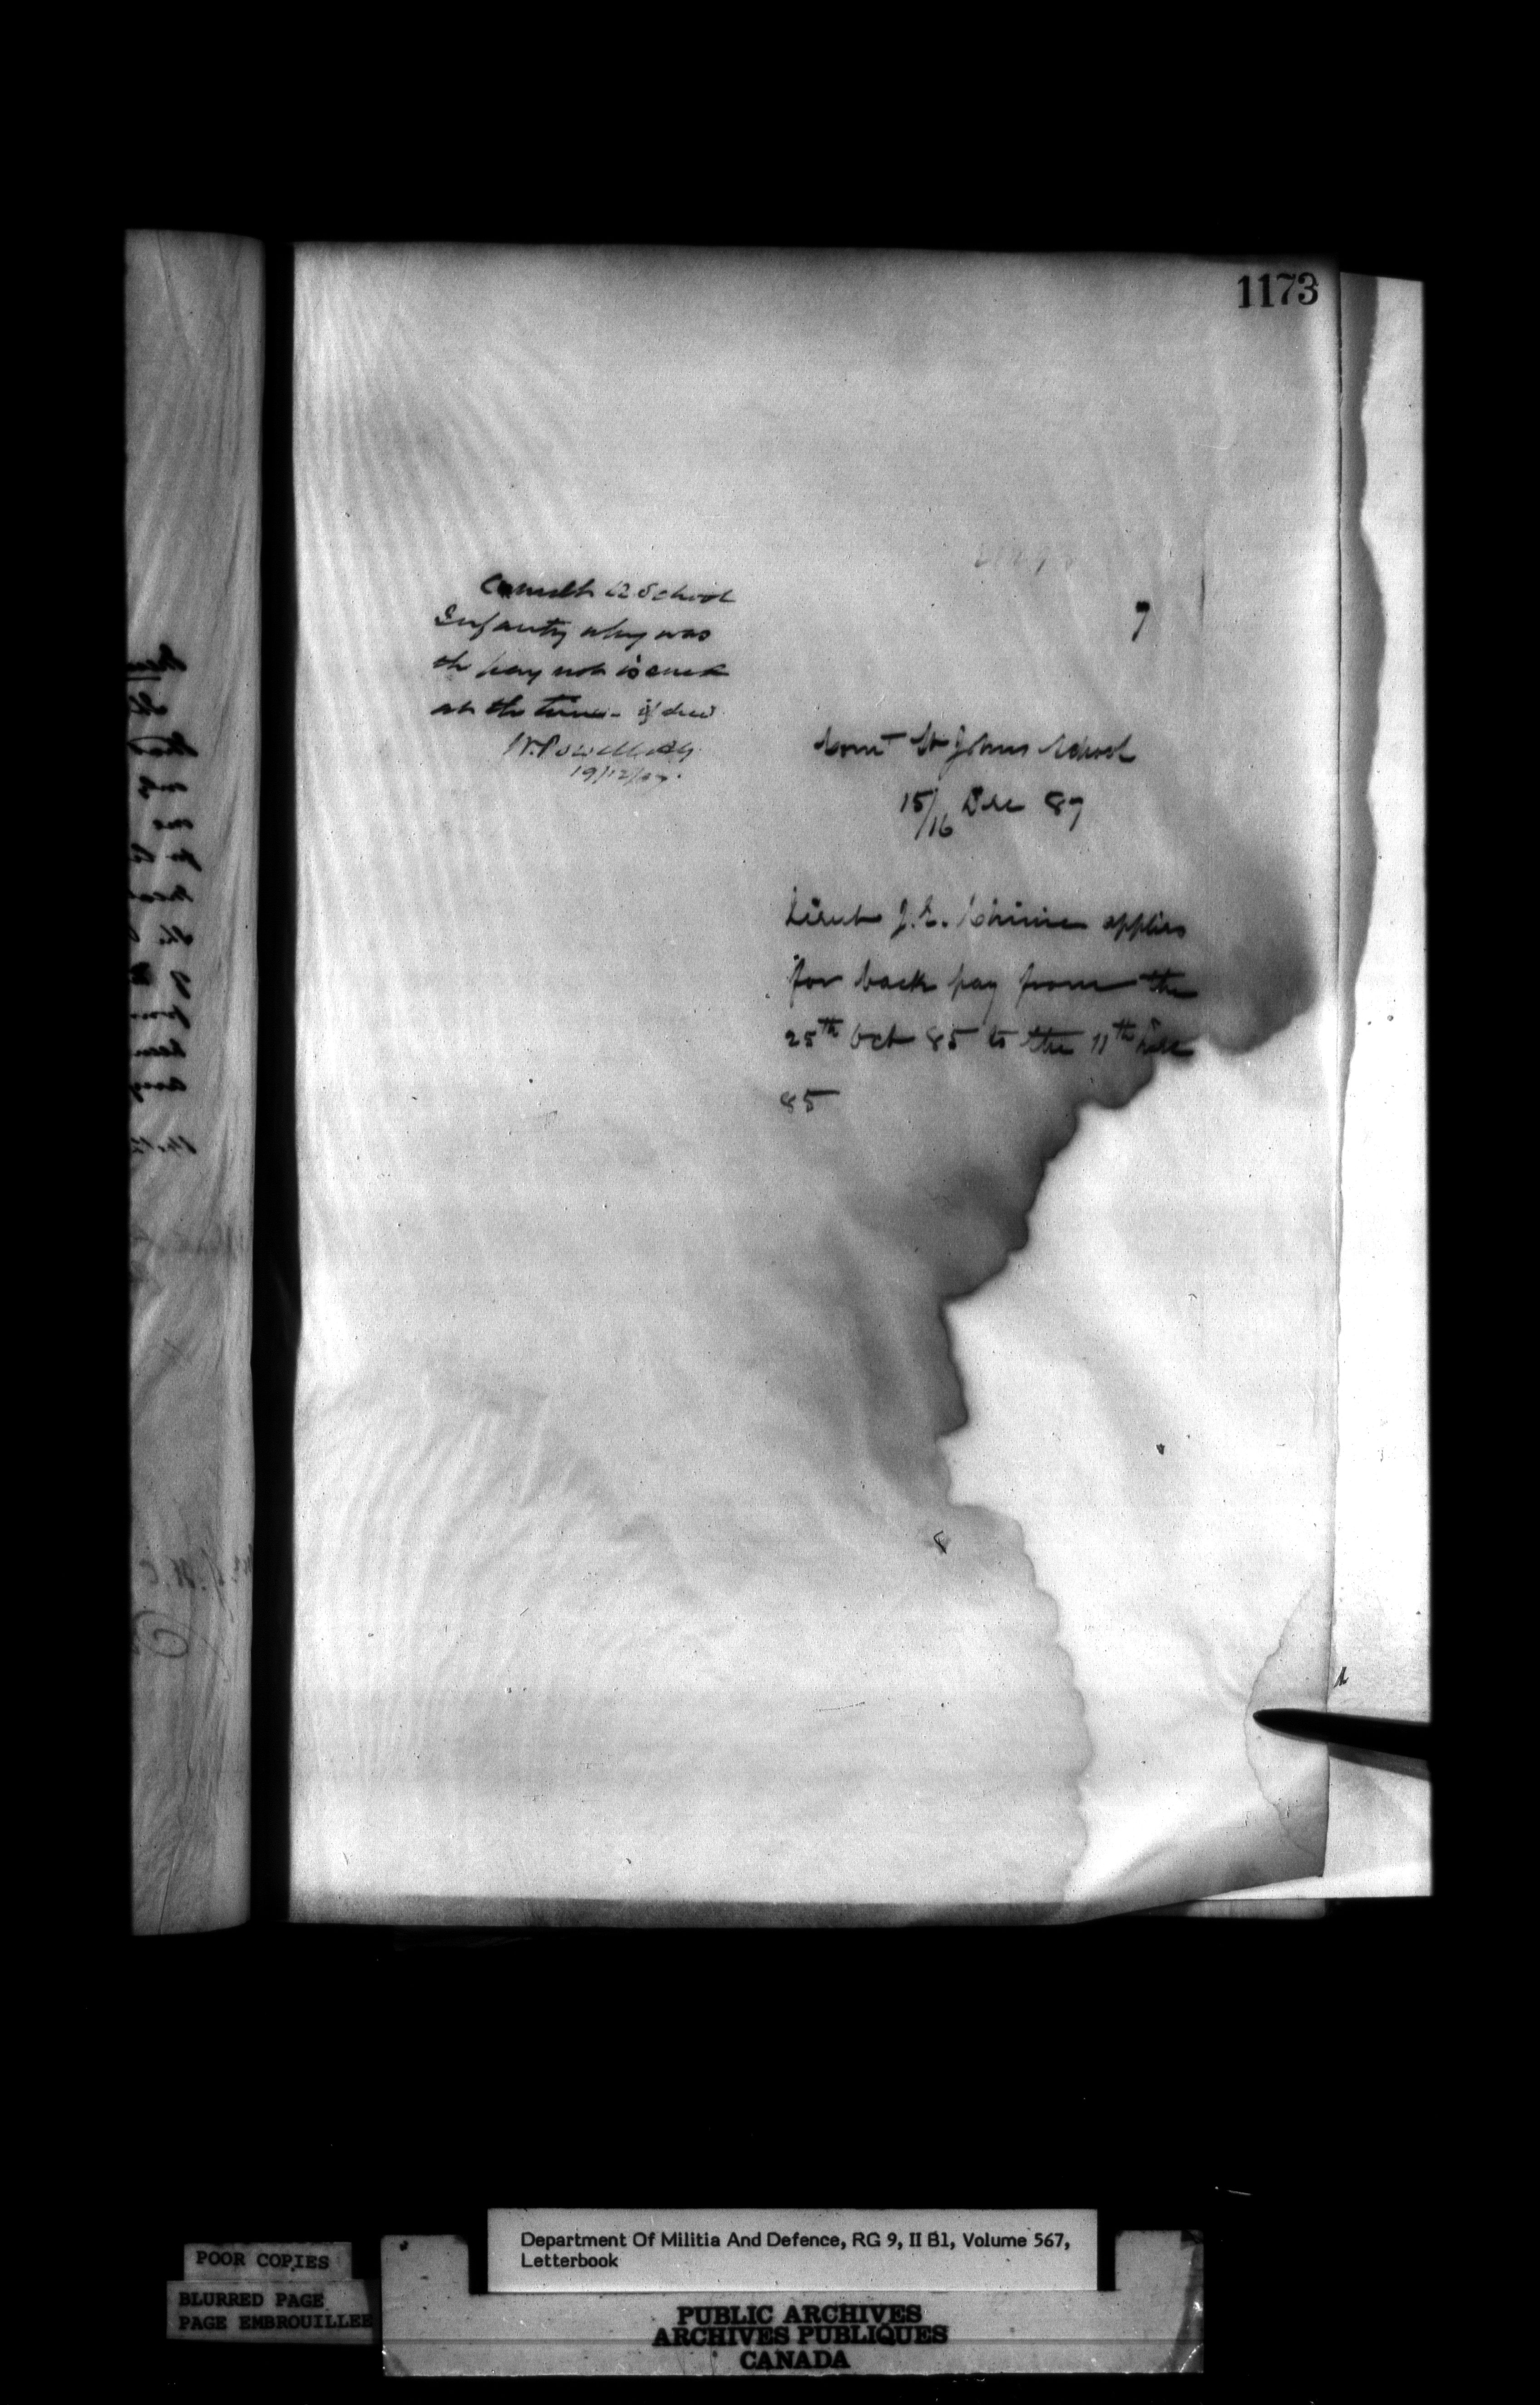 1173
7
Comdt R School
Infantry why was
the pay not issued
at the time - if due
W. Powell AG
19/12/87.
Comt St Johns School
15/16 Dec 87
Lieut J. E. applies
for back pay from the
25th Oct 85 to the 11th Dec
85
POOR COPIES
BLURRED PAGE
PAGE EMBROUILLEE
Department Of Militia And Defence, RG 9, II B1, Volume 567,
Letterbook
PUBLIC ARCHIVES
ARCHIVES PUBLIQUES
CANADA